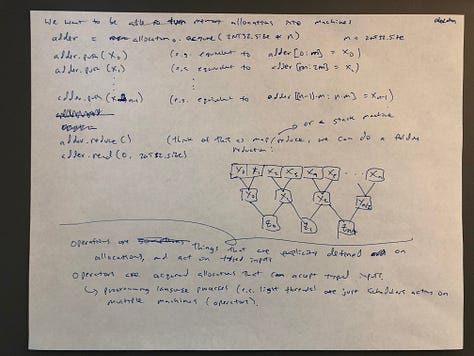 We want to be able to turn allocations into machines
adder = allocations.acquire(INT32.size * n) n = INT32.size
adder.push(X0) (e.g. equivalent to adder[0:m] = X0)
adder.push(X1) (e.g. equivalent to adder[m:2m] = X1)
adder.push(Xn-1) (e.g. equivalent to adder[(n-1)m: n.m] = Xn-1)
or a stack machine
adder.reduce() (think of this as map/reduce, we can do a
adder.read(0, INT32.size) reduction:
X0 X1 X2 X3 X4 X5 ... Xn
Operations are things that are explicitly defined on
allocations, and act on typed inputs
Operators are acquired allocations that can accept typed inputs
↳ programming language processes (e.g. light threads) are just schedulers acting on
multiple machines (operators).